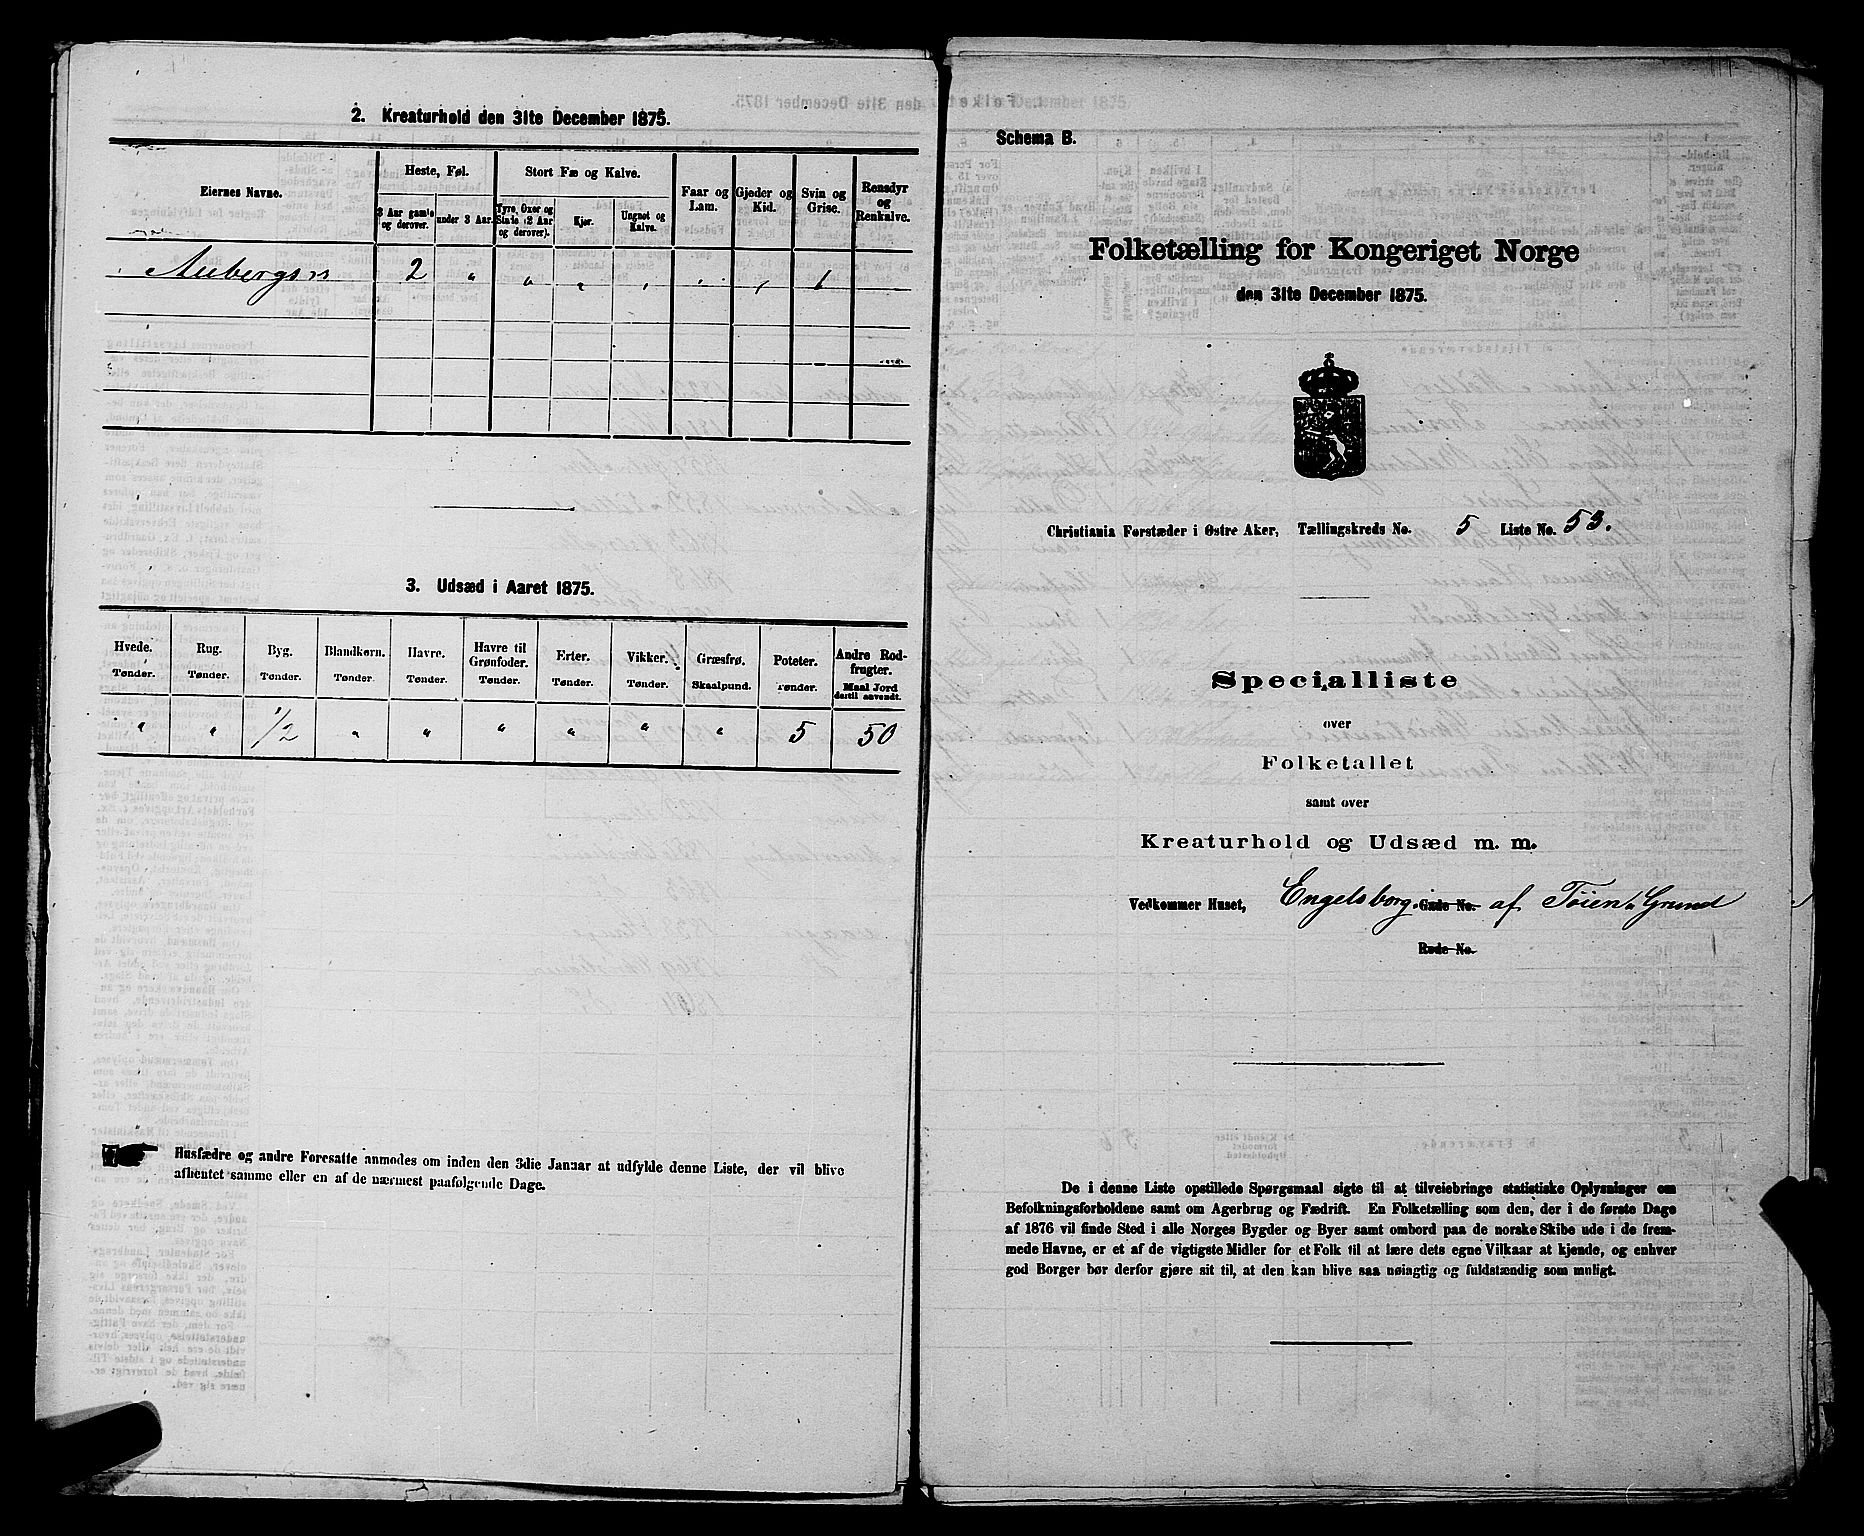 2. Kreaturhold den 31te December 1875.
Eiernes Navne.
Heste, Føl.
3 Aar gamle og derover.
under 3 Aar.
Stort Fæ og Kalve.
Tyre, Oxer og Stude (2 Aar og derover).
Kjør.
Ungnøt og Kalve.
Faar og Lam.
Gjeder og Kid.
Svin og Grise.
Rensdyr og Renkalve.
2 " " " " " " 1
3. Udsæd i Aaret 1875.
Hvede. Rug. Byg. Blandkorn. Havre. Havre til Grønfoder. Erter. Vikker. Græsfrø. Poteter. Andre Rodfrugter.
Tønder. Tønder. Tønder. Tønder. Tønder. Tønder. Tønder. Tønder. Skaalpund. Tønder. Maal Jord dertil anvendt.
" " 1/2 " " " " " " 5 50
Husfædre og andre Foresatte anmodes om inden den 3die Januar at udfylde denne Liste, der vil blive
afhentet samme eller en af de nærmest paafølgende Dage.
Schema B.
Folketælling for Kongeriget Norge
den 31te December 1875.
Christiania Forstæder i Østre Aker, Tællingskreds No. 5 Liste No. 53.
Specialliste
over
Folketallet
samt over
Kreaturhold og Udsæd m. m.
Vedkommer Huset, Engelsborg. Gade No. af Töien Grund
Rode No.
De i denne Liste opstillede Spørgsmaal sigte til at tilveiebringe statistiske Oplysninger om
Befolkningsforholdene samt om Agerbrug og Fædrift. En Folketælling som den, der i de første Dage
af 1876 vil finde Sted i alle Norges Bygder og Byer samt ombord paa de norske Skibe ude i de frem-
mede Havne, er et af de vigtigste Midler for et Folk til at lære dets egne Vilkaar at kjende, og enhver
god Borger bør derfor gjøre sit til, at den kan blive saa nøiagtig og fuldstændig som muligt.